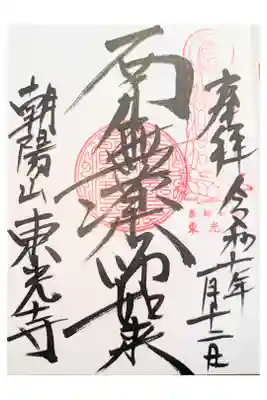 奉拝 令和六年 月十二日
東光
南無薬師如来
朝陽山 東光寺